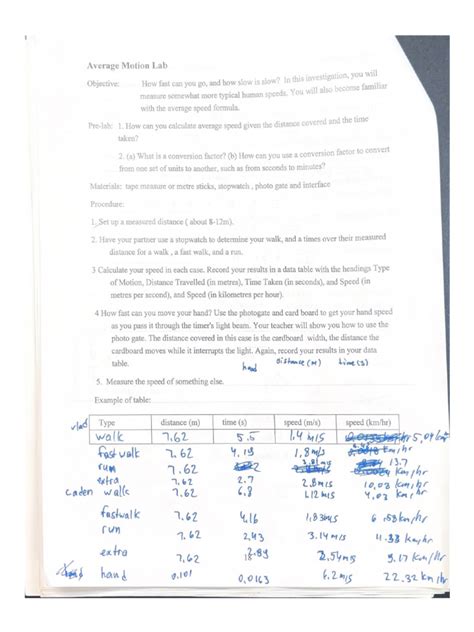 Average Motion Lab
Objective: How fast can you go, and how slow is slow? In this investigation, you will
measure somewhat more typical human speeds. You will also become familiar
with the average speed formula.
Pre-lab: 1. How can you calculate average speed given the distance covered and the time
taken?
2. (a) What is a conversion factor? (b) How can you use a conversion factor to convert
from one set of units to another, such as from seconds to minutes?
Materials: tape measure or metre sticks, stopwatch , photo gate and interface
Procedure:
1. Set up a measured distance ( about 8-12m).
2. Have your partner use a stopwatch to determine your walk, and a times over their measured
distance for a walk , a fast walk, and a run.
3 Calculate your speed in each case. Record your results in a data table with the headings Type
of Motion, Distance Travelled (in metres), Time Taken (in seconds), and Speed (in
metres per second), and Speed (in kilometres per hour).
4 How fast can you move your hand? Use the photogate and card board to get your hand speed
as you pass it through the timer's light beam. Your teacher will show you how to use the
photo gate. The distance covered in this case is the cardboard width, the distance the
cardboard moves while it interrupts the light. Again, record your results in your data
table.
hand distance (m) time (s)
5. Measure the speed of something else.
Example of table:
vlad Type distance (m) time (s) speed (m/s) speed (km/hr)
walk 7.62 5.5 1.4 m/s 5,04
fast walk 7.62 4.19 1,8 m/s km/hr
run 7.62 13.7
extra 7.62 2.7 2.8 m/s 10,08 km/hr
caden walk 7.62 6.8 1.12 m/s 4,03 km/hr
fastwalk 7.62 4,16 1,83 m/s 6.58 km/hr
run 7.62 2,43 3.14 m/s 11.33 km/hr
extra 7,62 2.89 2.54 m/s 9.17 km/hr
hand 0.101 0,0163 6.2 m/s 22.32 km/hr